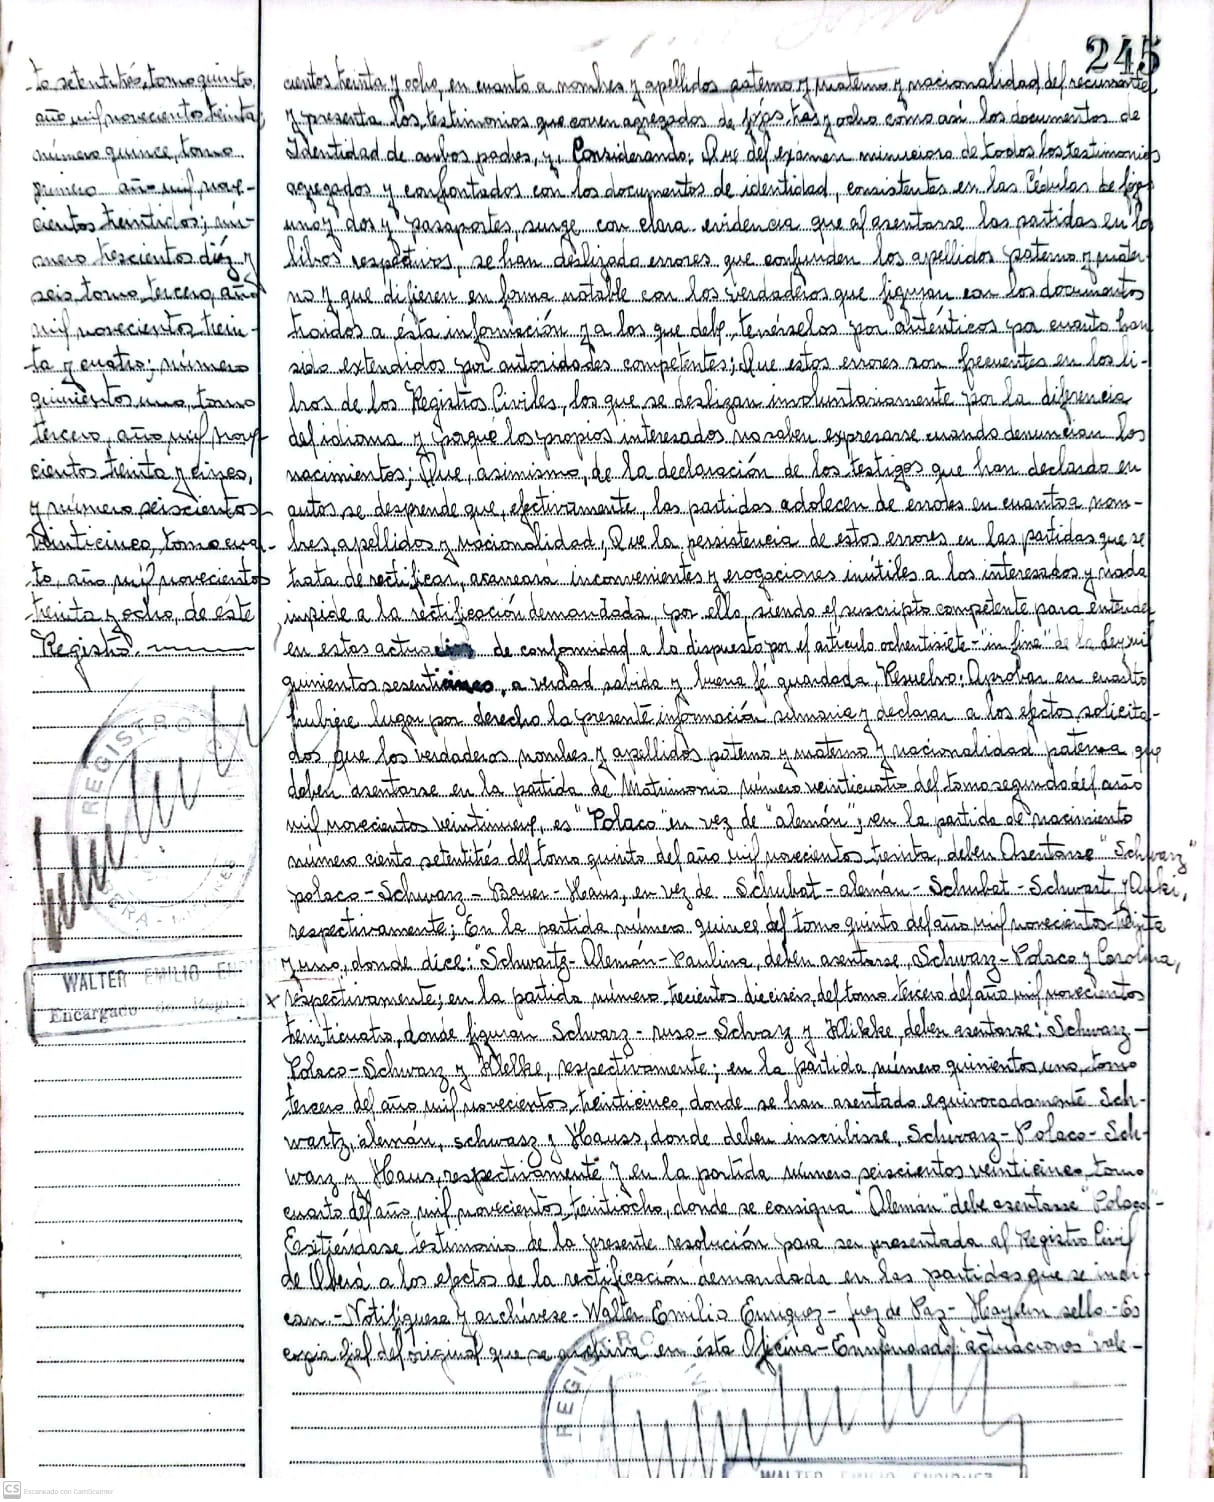 245
to setentitrés, tomo quinto,
año mil novecientos treinta;
número quince, tomo
primero año mil nove-
cientos treintidos; nú-
mero trescientos diéz y
seis, tomo tercero, año
mil novecientos trein-
ta y cuatro; número
quinientos uno, tomo
tercero, año mil nove-
cientos treinta y cinco,
y número seiscientos
veinticinco, tomo cuar-
to, año mil novecientos
treinta y ocho, de éste
Registro.
REGISTRO CIVIL
OBERA - MISIONES
WALTER EMILIO ENRIQUEZ
Encargado del Registro
cientos treinta y ocho, en cuanto a nombres y apellidos paterno y materno y nacionalidad del recurrente
y presenta los testimonios que corren agregados de fojas tres y ocho como así los documentos de
Identidad de ambos padres, y, Considerando: Que del exámen minucioso de todos los testimonios
agregados y confrontados con los documentos de identidad, consistentes en las Cédulas de fojas
uno y dos y pasaportes, surge con clara evidencia que al asentarse las partidas en los
libros respectivos, se han deslizado errores que confunden los apellidos paterno y mater-
no y que difieren en forma notable con los verdaderos que figuran en los documentos
traidos a ésta información y a los que debe tenérselos por auténticos por cuanto han
sido extendidos por autoridades competentes; Que estos errores son frecuentes en los li-
bros de los Registros Civiles, los que se deslizan involuntariamente por la diferencia
del idioma y porqué los propios interesados no saben expresarse cuando denuncian los
nacimientos; Que, asimismo, de la declaración de los testigos que han declardo en
autos se desprende que, efectivamente, las partidas adolecen de errores en cuanto a nom-
bres, apellidos y nacionalidad; Que la persistencia de estos errores en las partidas que se
trata de rectificar, acarreará inconvenientes y erogaciones inútiles a los interesados y nada
impide a la rectificación demandada, por ello, siendo el suscripto competente para entender
en estas de conformidad a lo dispuesto por el artículo ochentisiete-"in fine" de la Ley mil
quinientos sesenticinco, a verdad sabida y buena fé guardada, Resuelvo: Aprobar en cuanto
hubiere lugar por derecho la presente información sumaria y declarar a los efectos solicita-
dos que los verdaderos nombres y apellidos paterno y materno y nacionalidad paterna que
deben asentarse en la partida de Matrimonio número veinticuatro del tomo segundo del año
mil novecientos veintinueve, es "Polaco" en vez de "alemán"; en la partida de nacimiento
número ciento setentitrés del tomo quinto del año mil novecientos treinta, deben Asentarse "Schwarz"
polaco-Schwarz-Bauer-Haus, en vez de Schubat-alemán-Schubat-Schwart y
respectivamente; En la partida número quince del tomo quinto del año mil novecientos treinta
y uno, donde dice: "Schwartz-Alemán-Paulina, deben asentarse, Schwarz-Polaco y Carolina,
respectivamente; en la partida número trecientos dieciseis, del tomo tercero del año mil novecientos
treinticuatro, donde figuran Schwarz-ruso-Schvarz y Klikke, deben asentarse: "Schwarz-
Polaco-Schwarz y Klelke, respectivamente; en la partida número quinientos uno, tomo
tercero del año mil novecientos treinticinco, donde se han asentado equivocadamente Sch-
wartz, alemán, schwasz y Hauss, donde deben inscribirse, Schwarz-Polaco-Sch-
warz y Haus, respectivamente y en la partida número seiscientos veinticinco, tomo
cuarto del año mil novecientos treintiocho, donde se consigna "Alemán" debe asentarse "Polaco"-
Extiéndase testimonio de la presente resolución para ser presentada al Registro Civil
de Oberá a los efectos de la rectificación demandada en las partidas que se indi-
can.-Notifíquese y archívese-Walter Emilio Enriquez-Juez de Paz-Hay un sello.-Es
copia fiel del original que se archiva en ésta Oficina-Enmendado: "actuaciones" vale-
REGISTRO
WALTER EMILIO ENRIQUEZ
CS Escaneado con CamScanner